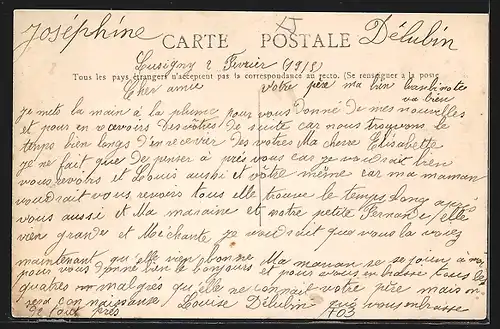 Joséphine Délubin
CARTE POSTALE
Lusigny 2 Fevrier (1918)
Tous les pays étrangers n'acceptent pas la correspondance au recto. (Se renseigner à la poste
Cher amie votre père ma bien
va bien
je mets la main à la plume pour vous donné de mes nouvelles
et pour en recevoirs des vôtres de suite car nous trouvons le
temps bien longs d'en recevoir des votres Ma cherre Elisabette
je ne fait que de penser à près vous car je voudrait bien
vous revoirs et Louis aussi et votre même car ma maman
voudrait vous revoirs tous elle trouve le temps long après
vous aussi et Ma maraine et votre petite Fernande elle
vien grande et Méchante je voudrait que vous la voyez
maintenant qu'elle vien bonne Ma maman se se joins a moi
pour vous donné bien le bonjours et pour vous enbrasse tous les
quatres malgrés qu'elle ne connait votre père mais
connaissance Louise Délubin qui vous enbrasse
de tout près 703